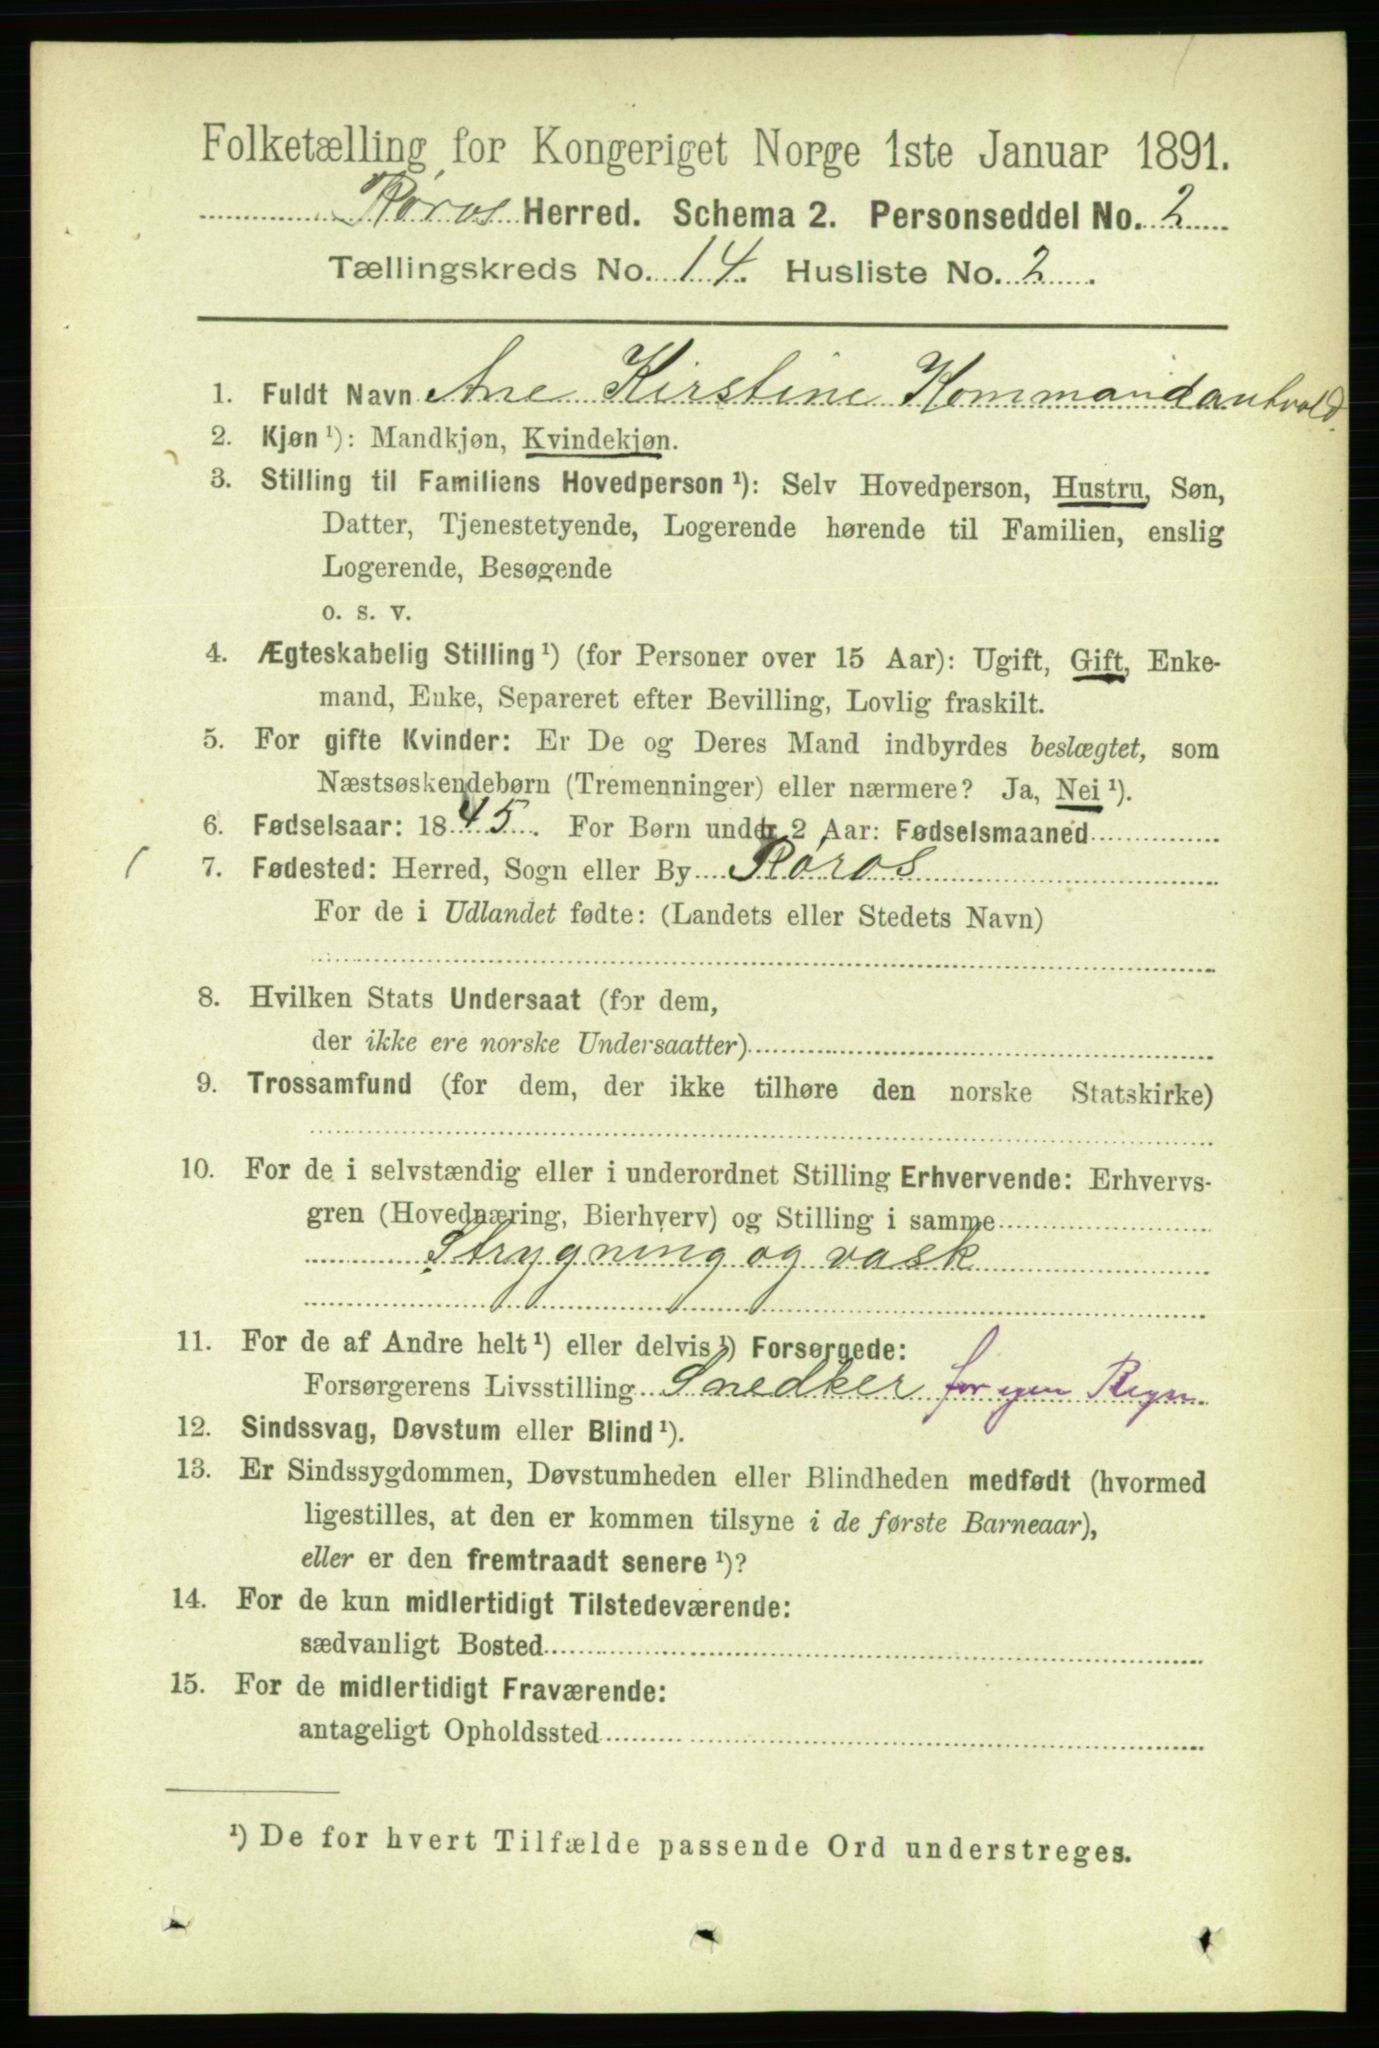 Folketælling for Kongeriget Norge 1ste Januar 1891.
Røros Herred. Schema 2. Personseddel No. 2
Tællingskreds No. 14. Husliste No. 2.
1. Fuldt Navn Ane Kirstine Kommandantvold
2. Kjøn ¹): Mandkjøn, Kvindekjøn.
3. Stilling til Familiens Hovedperson ¹): Selv Hovedperson, Hustru, Søn,
Datter, Tjenestetyende, Logerende hørende til Familien, enslig
Logerende, Besøgende
o. s. v.
4. Ægteskabelig Stilling ¹) (for Personer over 15 Aar): Ugift, Gift, Enke-
mand, Enke, Separeret efter Bevilling, Lovlig fraskilt.
5. For gifte Kvinder: Er De og Deres Mand indbyrdes beslægtet, som
Næstsøskendebørn (Tremenninger) eller nærmere? Ja, Nei ¹).
6. Fødselsaar: 1845. For Børn under 2 Aar: Fødselsmaaned
7. Fødested: Herred, Sogn eller By Røros
For de i Udlandet fødte: (Landets eller Stedets Navn)
8. Hvilken Stats Undersaat (for dem,
der ikke ere norske Undersaatter)
9. Trossamfund (for dem, der ikke tilhøre den norske Statskirke)
10. For de i selvstændig eller i underordnet Stilling Erhvervende: Erhvervs-
gren (Hovednæring, Bierhverv) og Stilling i samme
Strygning og vask
11. For de af Andre helt ¹) eller delvis ¹) Forsørgede:
Forsørgerens Livsstilling Snedker for egen Regn.
12. Sindssvag, Døvstum eller Blind ¹).
13. Er Sindssygdommen, Døvstumheden eller Blindheden medfødt (hvormed
ligestilles, at den er kommen tilsyne i de første Barneaar),
eller er den fremtraadt senere ¹)?
14. For de kun midlertidigt Tilstedeværende:
sædvanligt Bosted
15. For de midlertidigt Fraværende:
antageligt Opholdssted
¹) De for hvert Tilfælde passende Ord understreges.